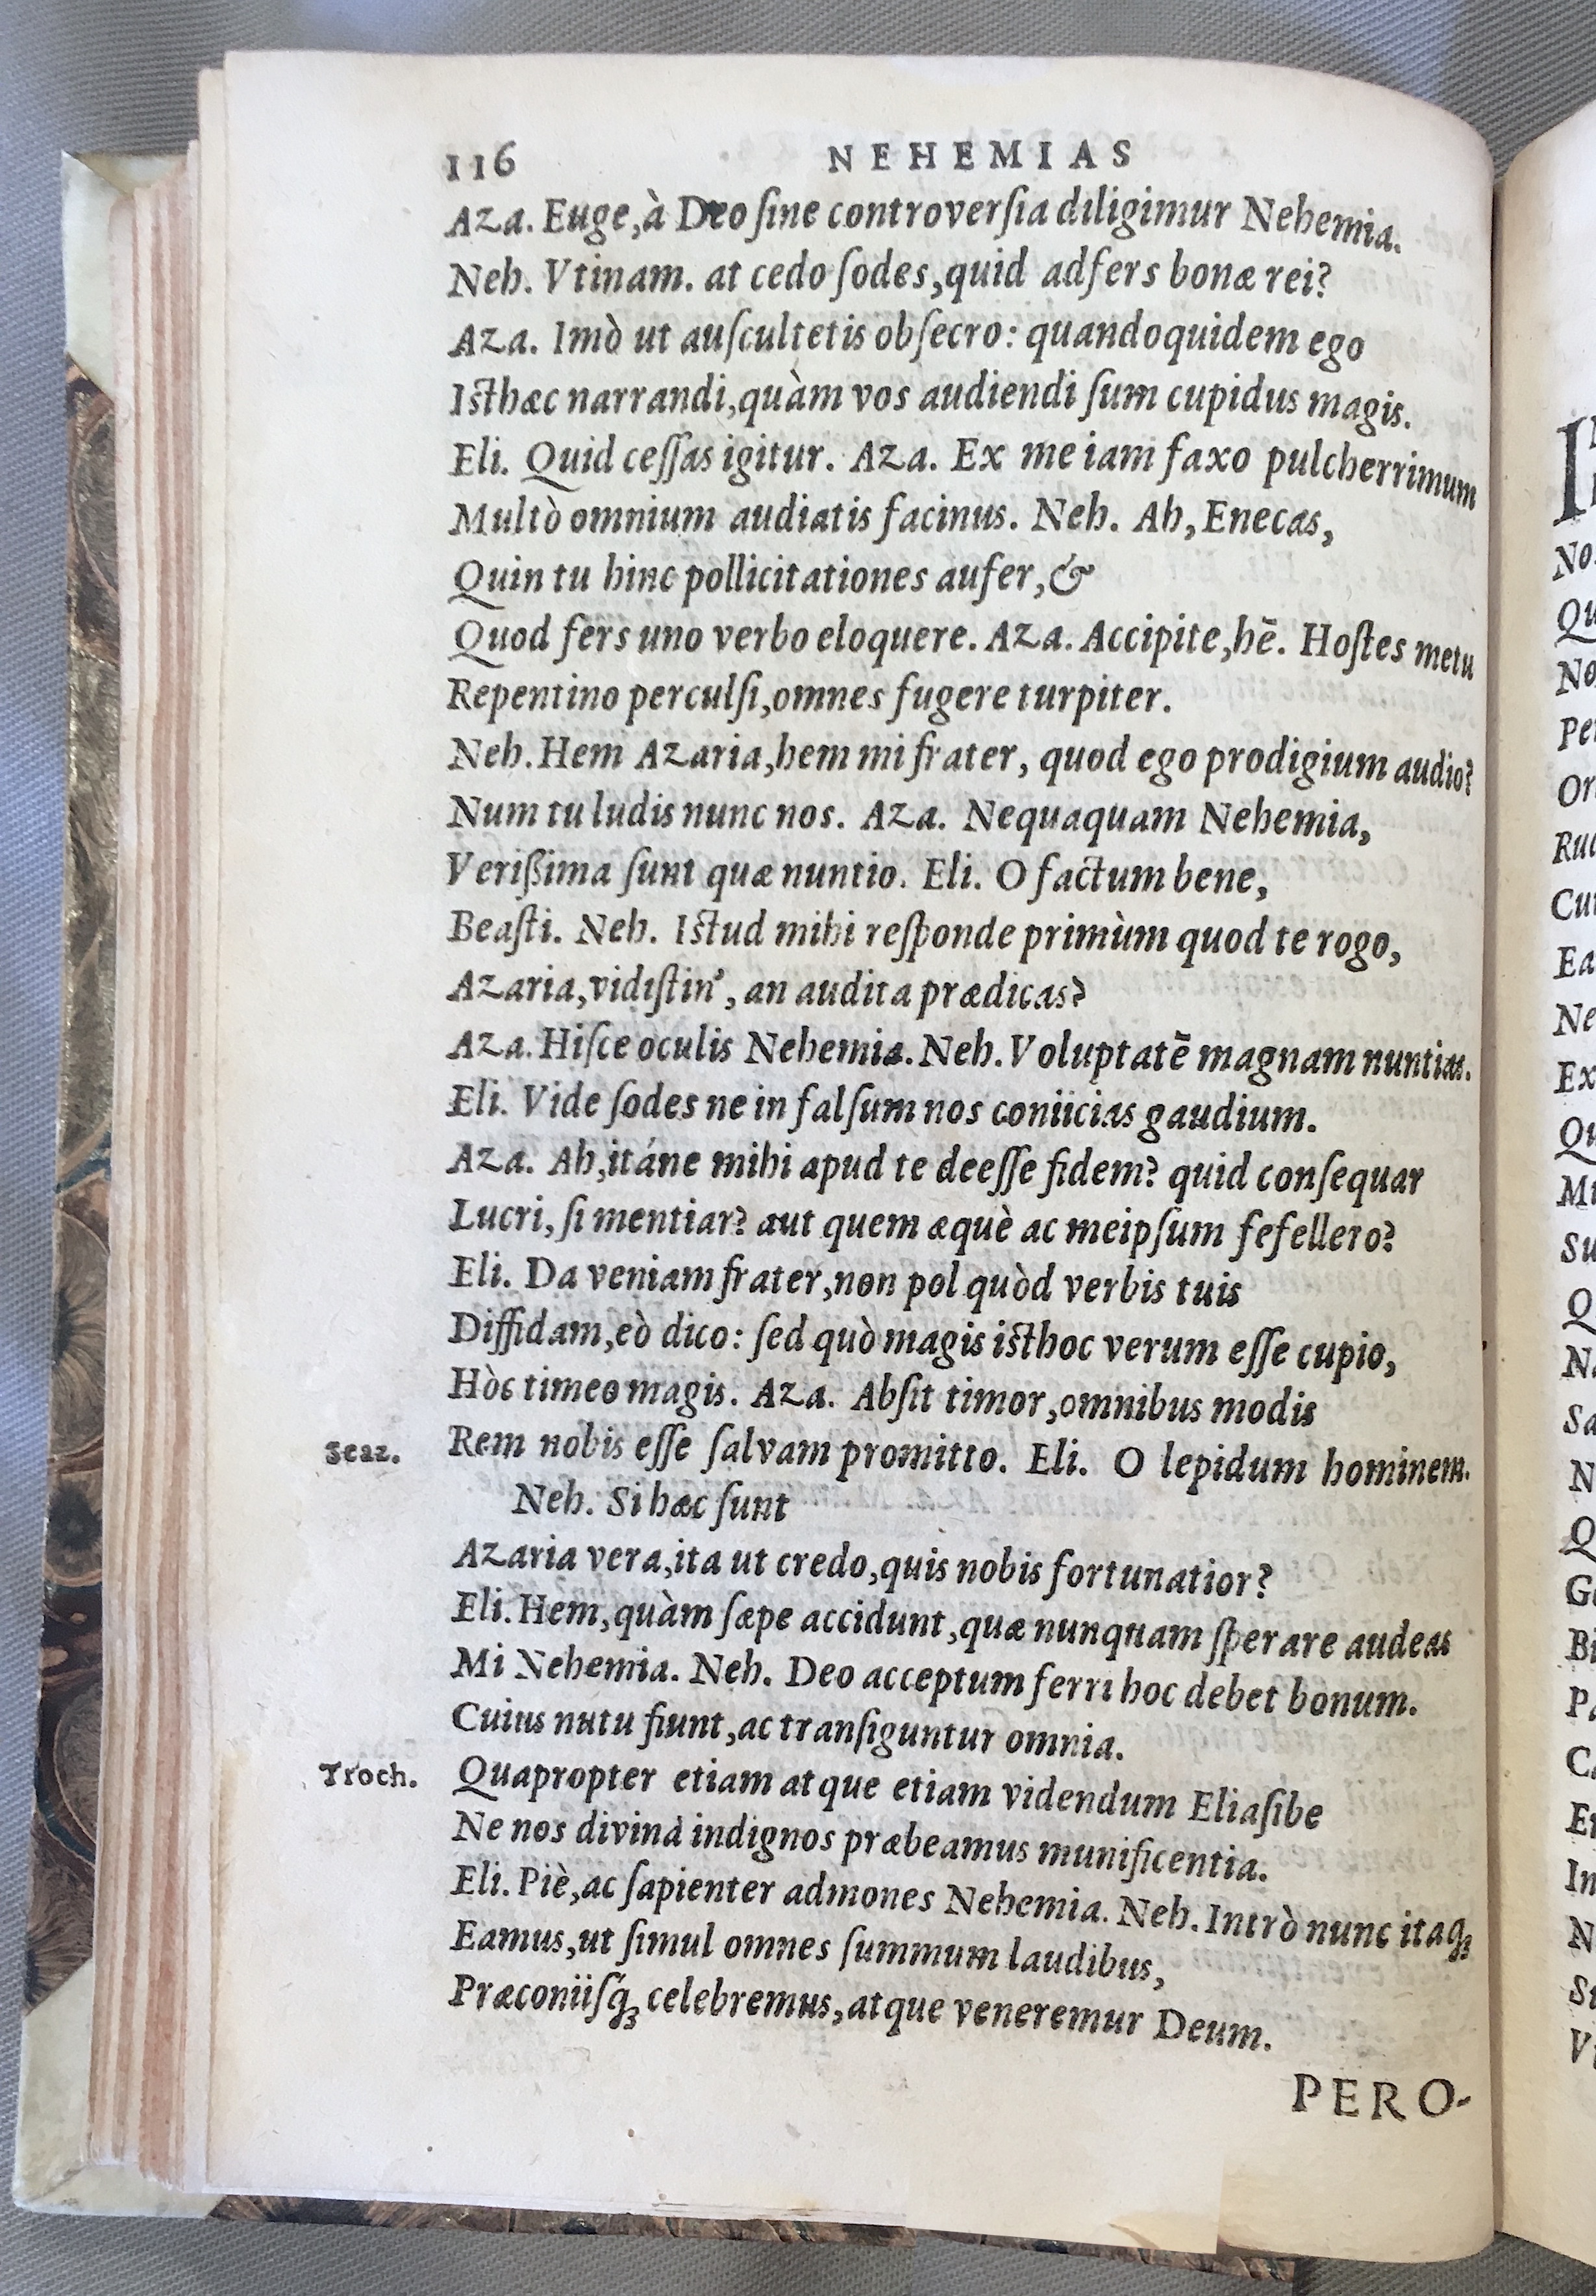 116 NEHEMIAS
Aza. Euge, à Deo ſine controverſia diligimur Nehemia.
Neh. Vtinam. at cedo ſodes, quid adfers bonæ rei?
Aza. Imò ut auſcultetis obſecro: quandoquidem ego
Iſthæc narrandi, quàm vos audiendi ſum cupidus magis.
Eli. Quid ceſſas igitur. Aza. Ex me iam faxo pulcherrimum
Multò omnium audiatis facinus. Neh. Ah, Enecas,
Quin tu hinc pollicitationes aufer, &
Quod fers uno verbo eloquere. Aza. Accipite, hē. Hoſtes metu
Repentino perculſi, omnes fugere turpiter.
Neh. Hem Azaria, hem mi frater, quod ego prodigium audio?
Num tu ludis nunc nos. Aza. Nequaquam Nehemia,
Verißima ſunt quæ nuntio. Eli. O factum bene,
Beaſti. Neh. Iſtud mihi reſponde primùm quod te rogo,
Azaria, vidiſtin', an audita prædicas?
Aza. Hiſce oculis Nehemia. Neh. Voluptatē magnam nuntias.
Eli. Vide ſodes ne in falſum nos coniicias gaudium.
Aza. Ah, itáne mihi apud te deeſſe fidem? quid conſequar
Lucri, ſi mentiar? aut quem æquè ac meipſum fefellero?
Eli. Da veniam frater, non pol quòd verbis tuis
Diffidam, eò dico: ſed quò magis iſthoc verum eſſe cupio,
Hòc timeo magis. Aza. Abſit timor, omnibus modis
Scaz. Rem nobis eſſe ſalvam promitto. Eli. O lepidum hominem.
Neh. Si hæc ſunt
Azaria vera, ita ut credo, quis nobis fortunatior?
Eli. Hem, quàm ſæpe accidunt, quæ nunquam ſperare audeas
Mi Nehemia. Neh. Deo acceptum ferri hoc debet bonum.
Cuius nutu fiunt, ac tranſiguntur omnia.
Troch. Quapropter etiam atque etiam videndum Eliaſibe
Ne nos divinâ indignos præbeamus munificentia.
Eli. Piè, ac ſapienter admones Nehemia. Neh. Intrò nunc itaqꝫ
Eamus, ut ſimul omnes ſummum laudibus,
Præconiiſq́ꝫ celebremus, atque veneremur Deum.
PERO-